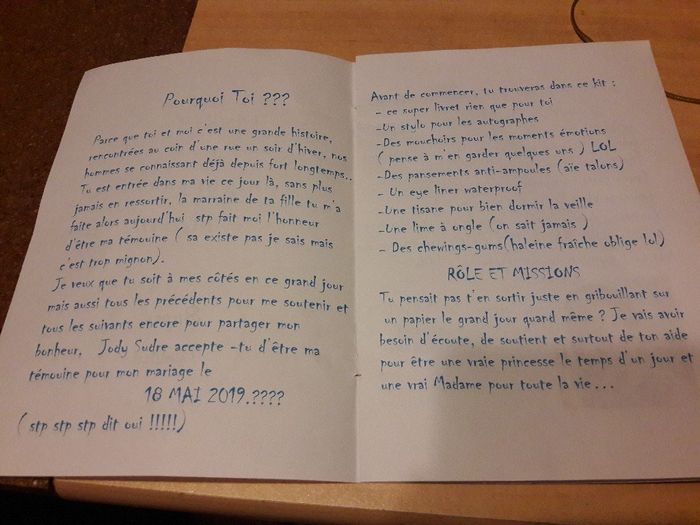 Pourquoi Toi ???
Parce que toi et moi c'est une grande histoire,
rencontrées au coin d'une rue un soir d'hiver, nos
hommes se connaissant déjà depuis fort longtemps..
Tu est entrée dans ma vie ce jour là, sans plus
jamais en ressortir, la marraine de ta fille tu m'a
faite alors aujourd'hui stp fait moi l'honneur
d'être ma témouine ( sa existe pas je sais mais
c'est trop mignon).
Je veux que tu soit à mes côtés en ce grand jour
mais aussi tous les précédents pour me soutenir et
tous les suivants encore pour partager mon
bonheur, Jody Sudre accepte -tu d'être ma
témouine pour mon mariage le
18 MAI 2019.????
( stp stp stp dit oui !!!!!)
Avant de commencer, tu trouveras dans ce kit :
- ce super livret rien que pour toi
-Un stylo pour les autographes
-Des mouchoirs pour les moments émotions
( pense à m'en garder quelques uns ) LOL
-Des pansements anti-ampoules (aïe talons)
- Un eye liner waterproof
-Une tisane pour bien dormir la veille
-Une lime à ongle (on sait jamais )
- Des chewings-gums(haleine fraîche oblige lol)
RÔLE ET MISSIONS
Tu pensait pas t'en sortir juste en gribouillant sur
un papier le grand jour quand même ? Je vais avoir
besoin d'écoute, de soutient et surtout de ton aide
pour être une vraie princesse le temps d'un jour et
une vrai Madame pour toute la vie...